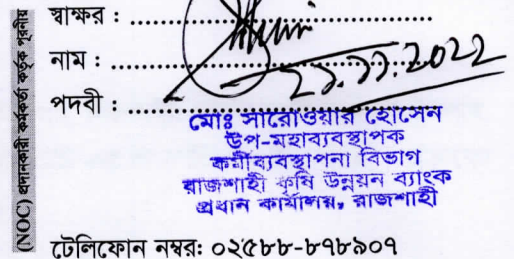 (NOC) প্রদানকারী কর্মকর্তা কর্তৃক পূরণীয়
স্বাক্ষর : ........................................
নাম : ........................................
২১.১১.2022
পদবী : ........................................
মোঃ সারোওয়ার হোসেন
উপ-মহাব্যবস্থাপক
কর্মীব্যবস্থাপনা বিভাগ
রাজশাহী কৃষি উন্নয়ন ব্যাংক
প্রধান কার্যালয়, রাজশাহী
টেলিফোন নম্বর: ০২৫৮৮-৮৭৮৯০৭